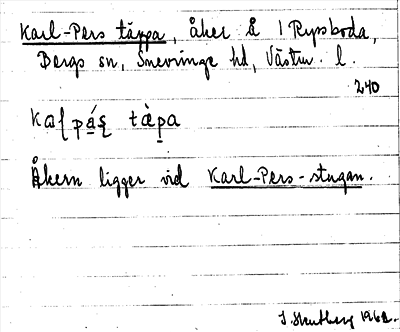 Karl-Pers täppa, åker å 1 Rypsboda,
Bergs sn, Snevringe hd, Västm. l.
240
kaɭpá̱ʂ tæ̀p̱a
Åkern ligger vid Karl-Pers-stugan.
1962.